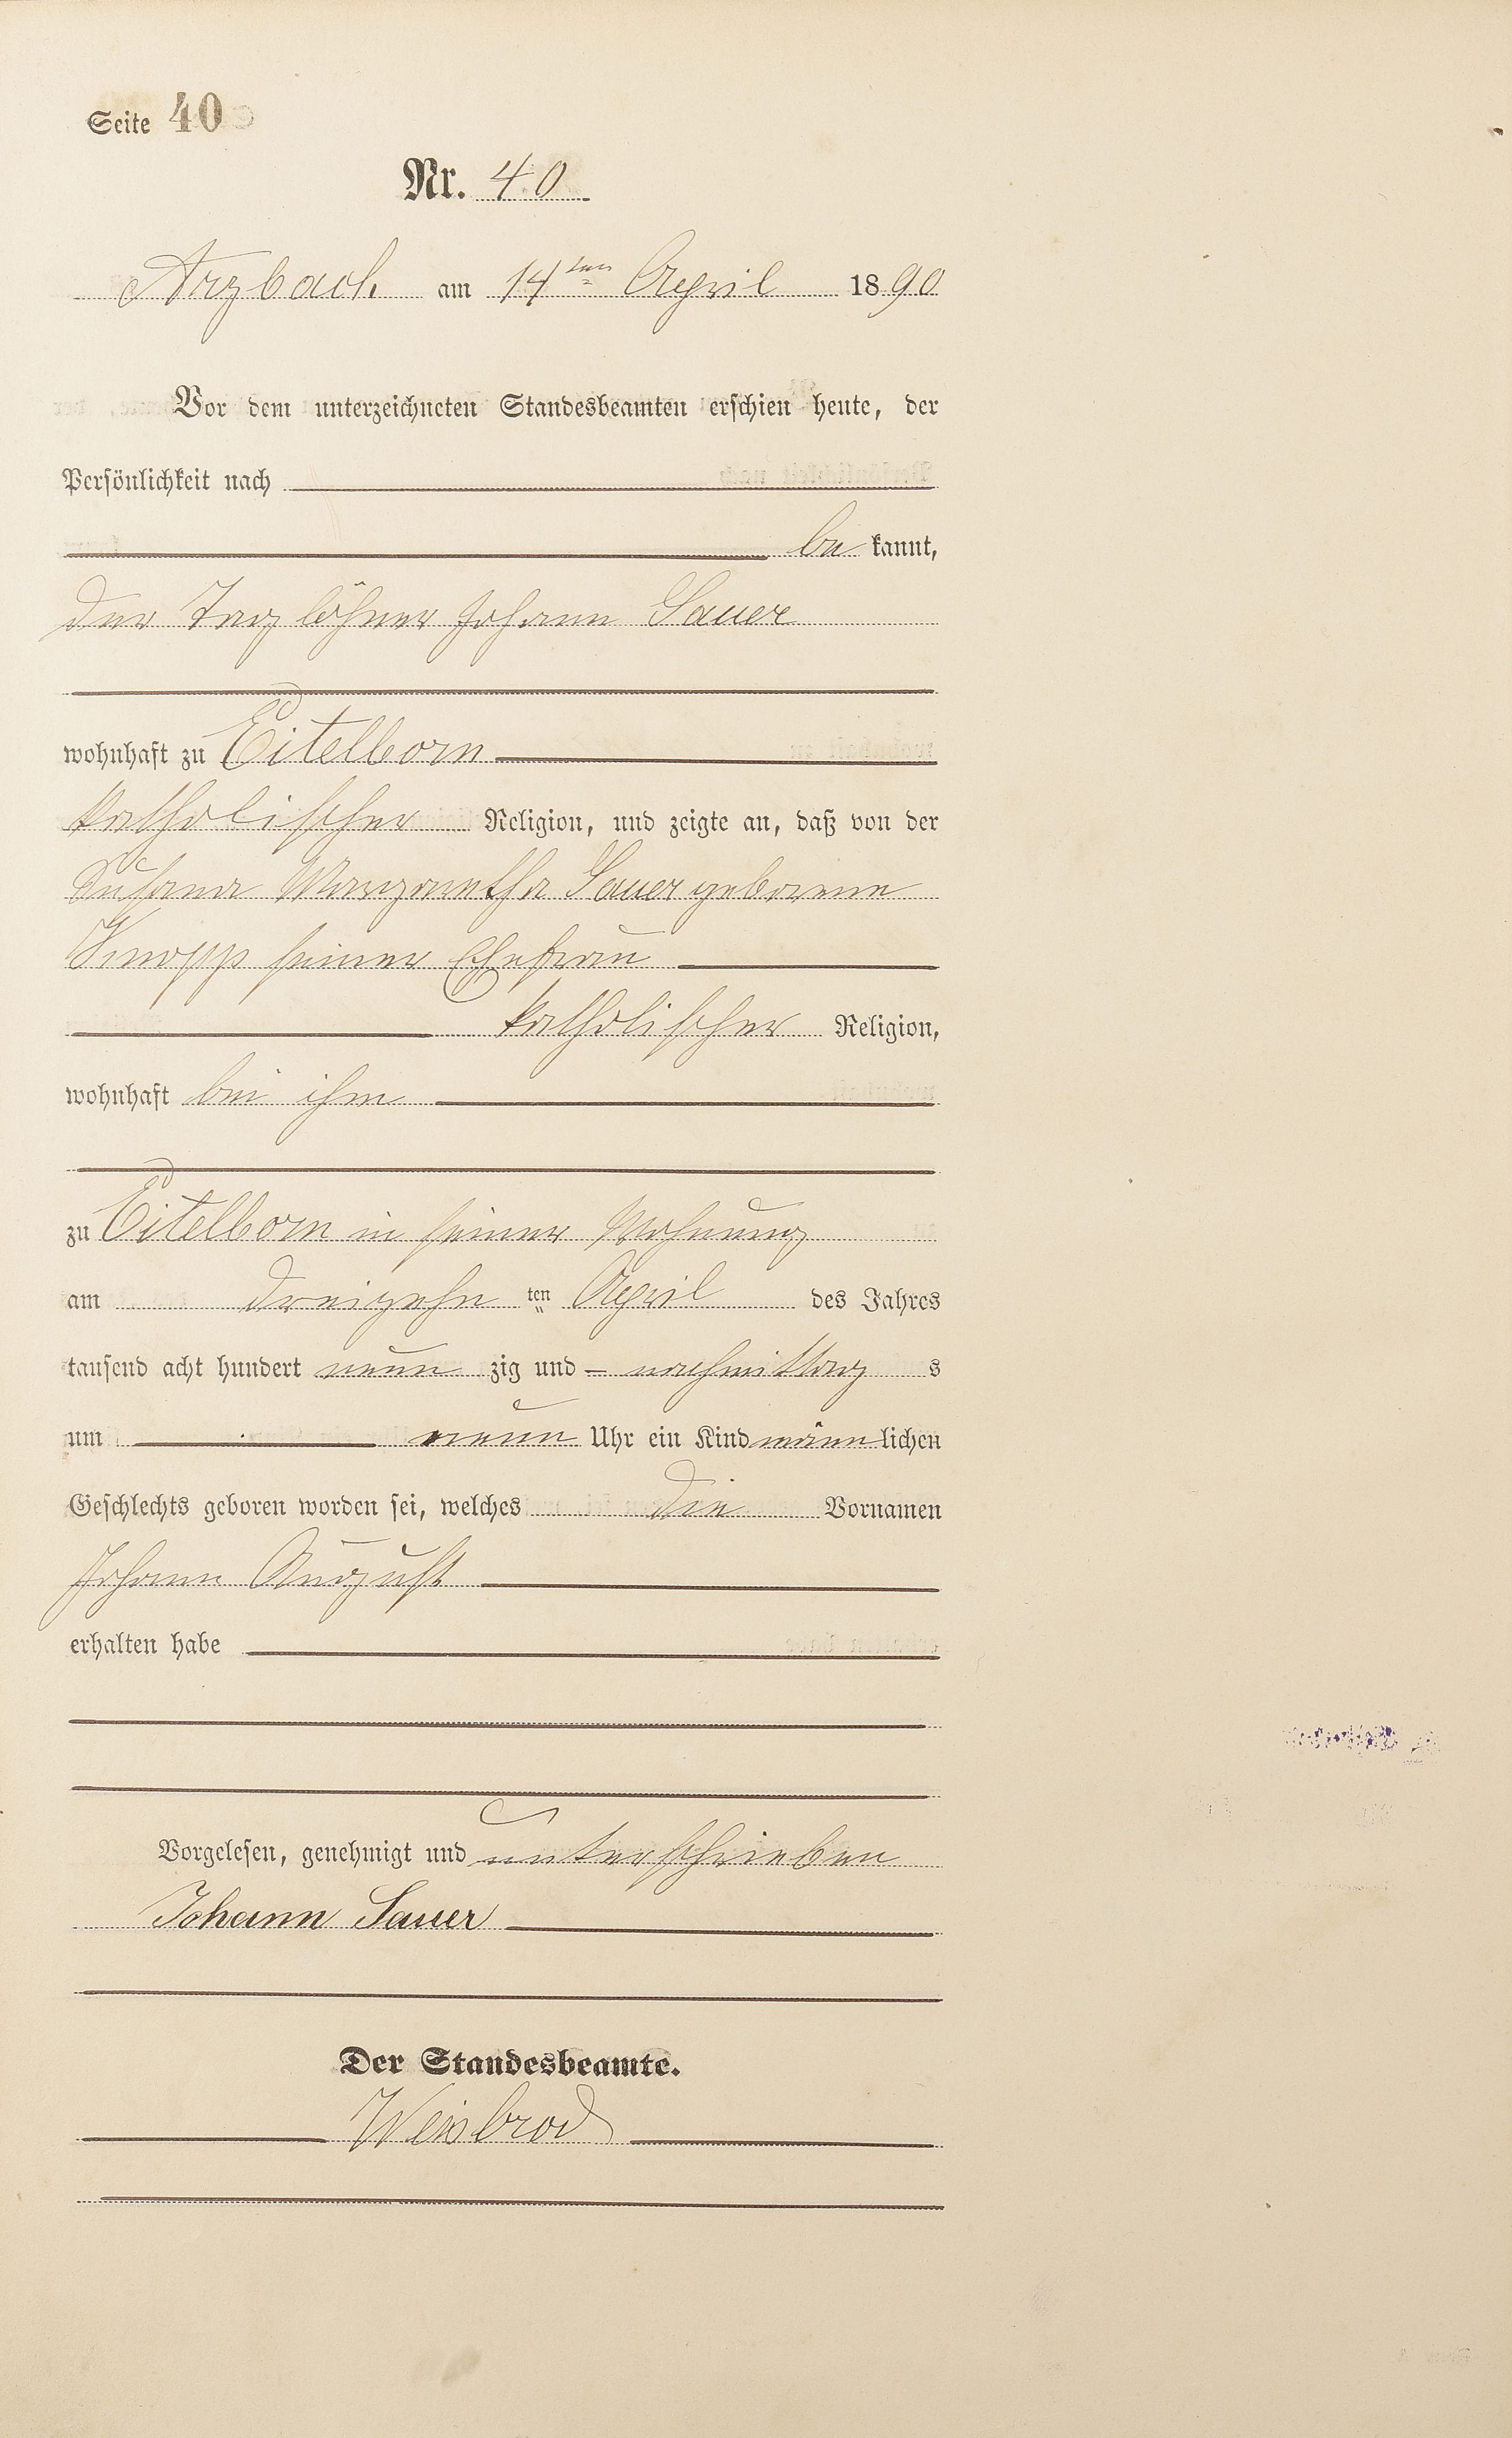 Seite 40
Nr. 40
Arzbach am 14ten April 1890
Vor dem unterzeichneten Standesbeamten erschien heute, der
Persönlichkeit nach
be kannt,
der Taglöhner Johann Sauer
wohnhaft zu Eitelborn
katholischer Religion, und zeigte an, daß von der
Susana Margaretha Sauer geborene
Knopp seiner Ehefrau
katholischer Religion,
wohnhaft bei ihm
zu Eitelborn in seiner Wohnung
am dreizehn ten April des Jahres
tausend acht hundert neun zig und – nachmittag s
um neun Uhr ein Kind männ lichen
Geschlechts geboren worden sei, welches die Vornamen
Johann August
erhalten habe
Vorgelesen, genehmigt und unterschrieben
Johann Sauer
Der Standesbeamte.
Weisbrod